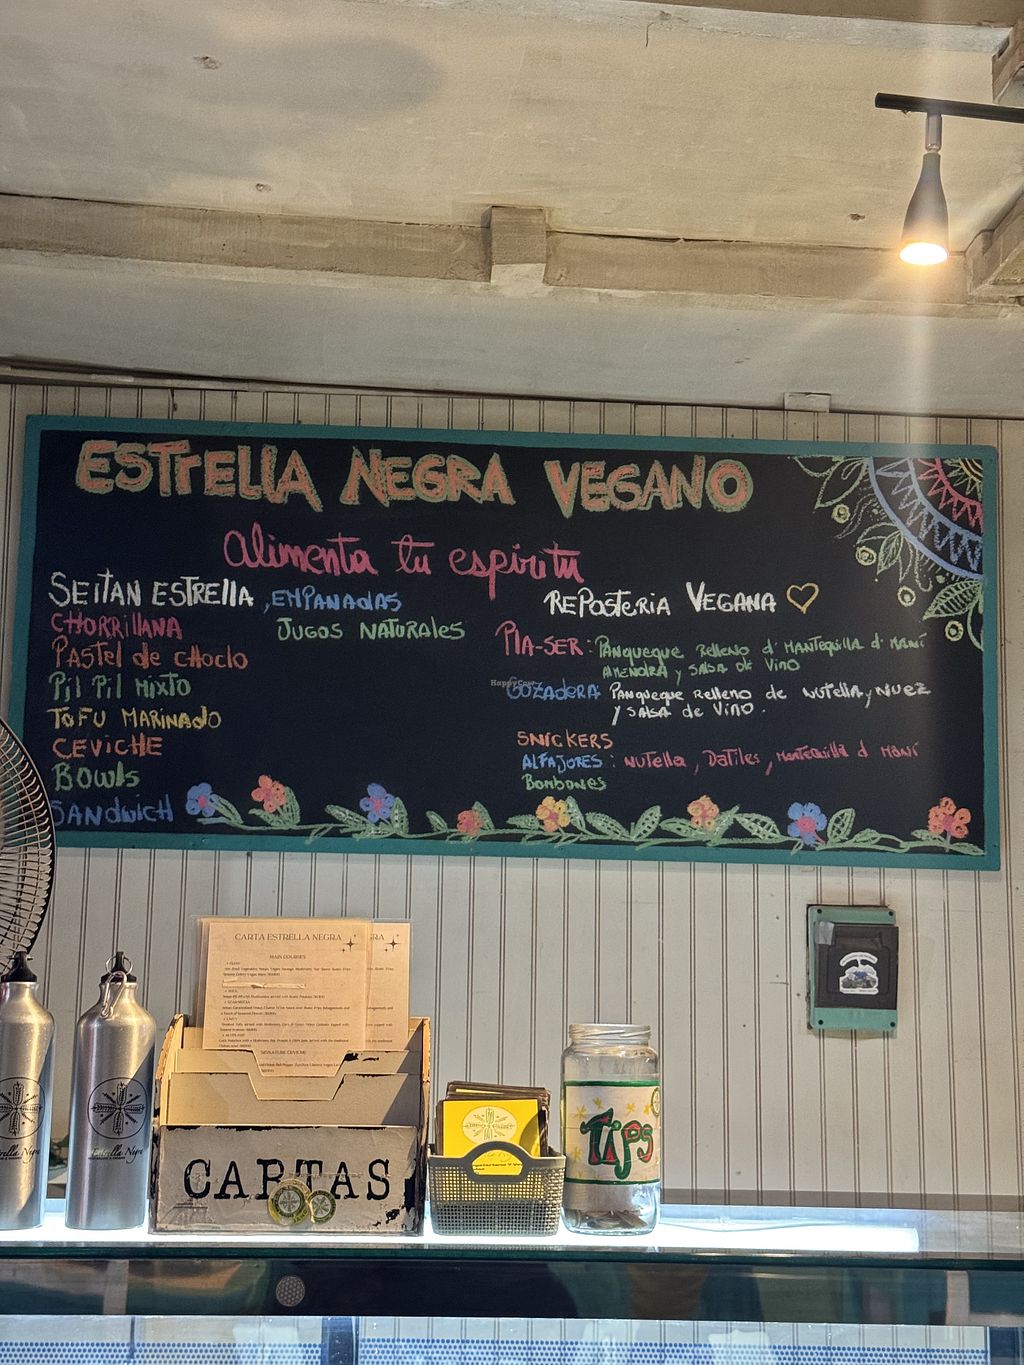 ESTRELLA NEGRA VEGANO
alimenta tu espíritu
SEITAN ESTRELLA , EMPANADAS
CHORRILLANA
JUGOS NATURALES
PASTEL de CHOCLO
Pil Pil MIXTO
TOFU MARINADO
CEVICHE
BOWLS
SANDWICH
REPOSTERIA VEGANA
PLA-SER: PANQUEQUE RELLENO d' MANTEQUILLA d' MANÍ
ALMENDRA Y SALSA de VINO
GOZADERA PANQUEQUE RELLENO de NUTELLA, NUEZ
Y SALSA de VINO.
SNICKERS
ALFAJORES: NUTELLA, DATILES, MANTEQUILLA d MANÍ
BOMBONES
HappyCow
CARTA ESTRELLA NEGRA
MAIN COURSES
SIGNATURE CEVICHE
CARTAS
Tips
Estrella Negra